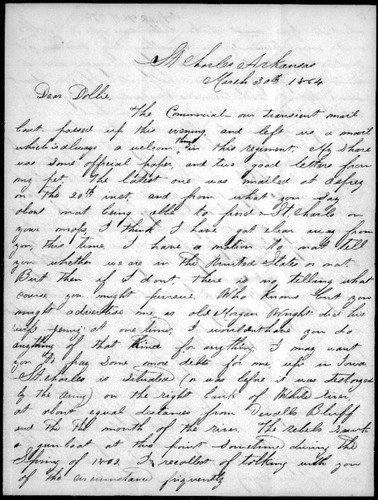 St Charles Arkansas
March 30th 1864
Dear Dollie,
The Commercial our transient mail
boat passed up this evening, and left us a mail
which is always a welcome thing in this regiment. My share
was some official paper, and two good letters from
my pet. The latest one was mailed at
on the 20th inst, and from what you say
about not being able to find St. Charles on
your maps, I think I have got clear away from
you, this time. I have a notion to not tell
you whether we are in the United States or not.
But then if I dont, there is no telling what
course you might pursue. Who knows but you
might advertise me as old Morgan Wright did his
wife at one time, I wouldnt have you do
anything of that kind for anything. I may want
you to pay some more debts for me, up in Iowa
St. Charles is situated (or was before it was destroyed
by the Army) on the right bank of White river,
at about equal distances from Duvalls Bluff
and the the mouth of the river. The rebels sunk
a gunboat at this point sometime during the
Spring of 1862. I recollect of talking with you
of the circumstance frequently